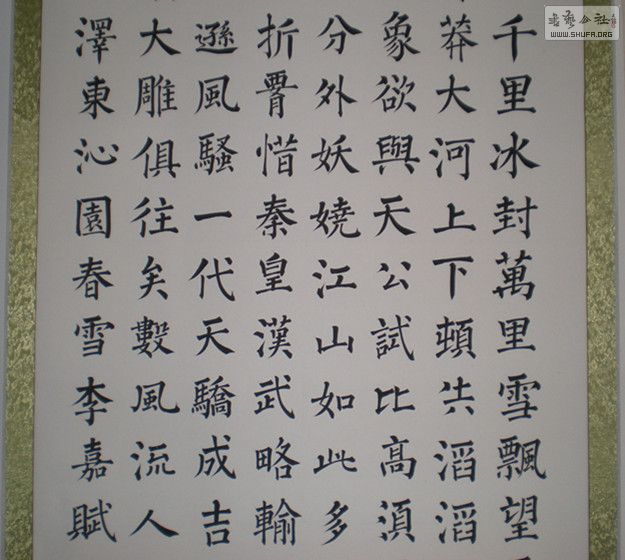 千里冰封萬里雪飄望
莽大河上下頓失滔滔
象欲與天公試比高須
分外妖嬈江山如此多
折腰惜秦皇漢武略輸
遜風騷一代天驕成吉
大雕俱往矣數風流人
澤東沁園春雪李嘉賦
書藝公社
WWW.SHUFA.ORG